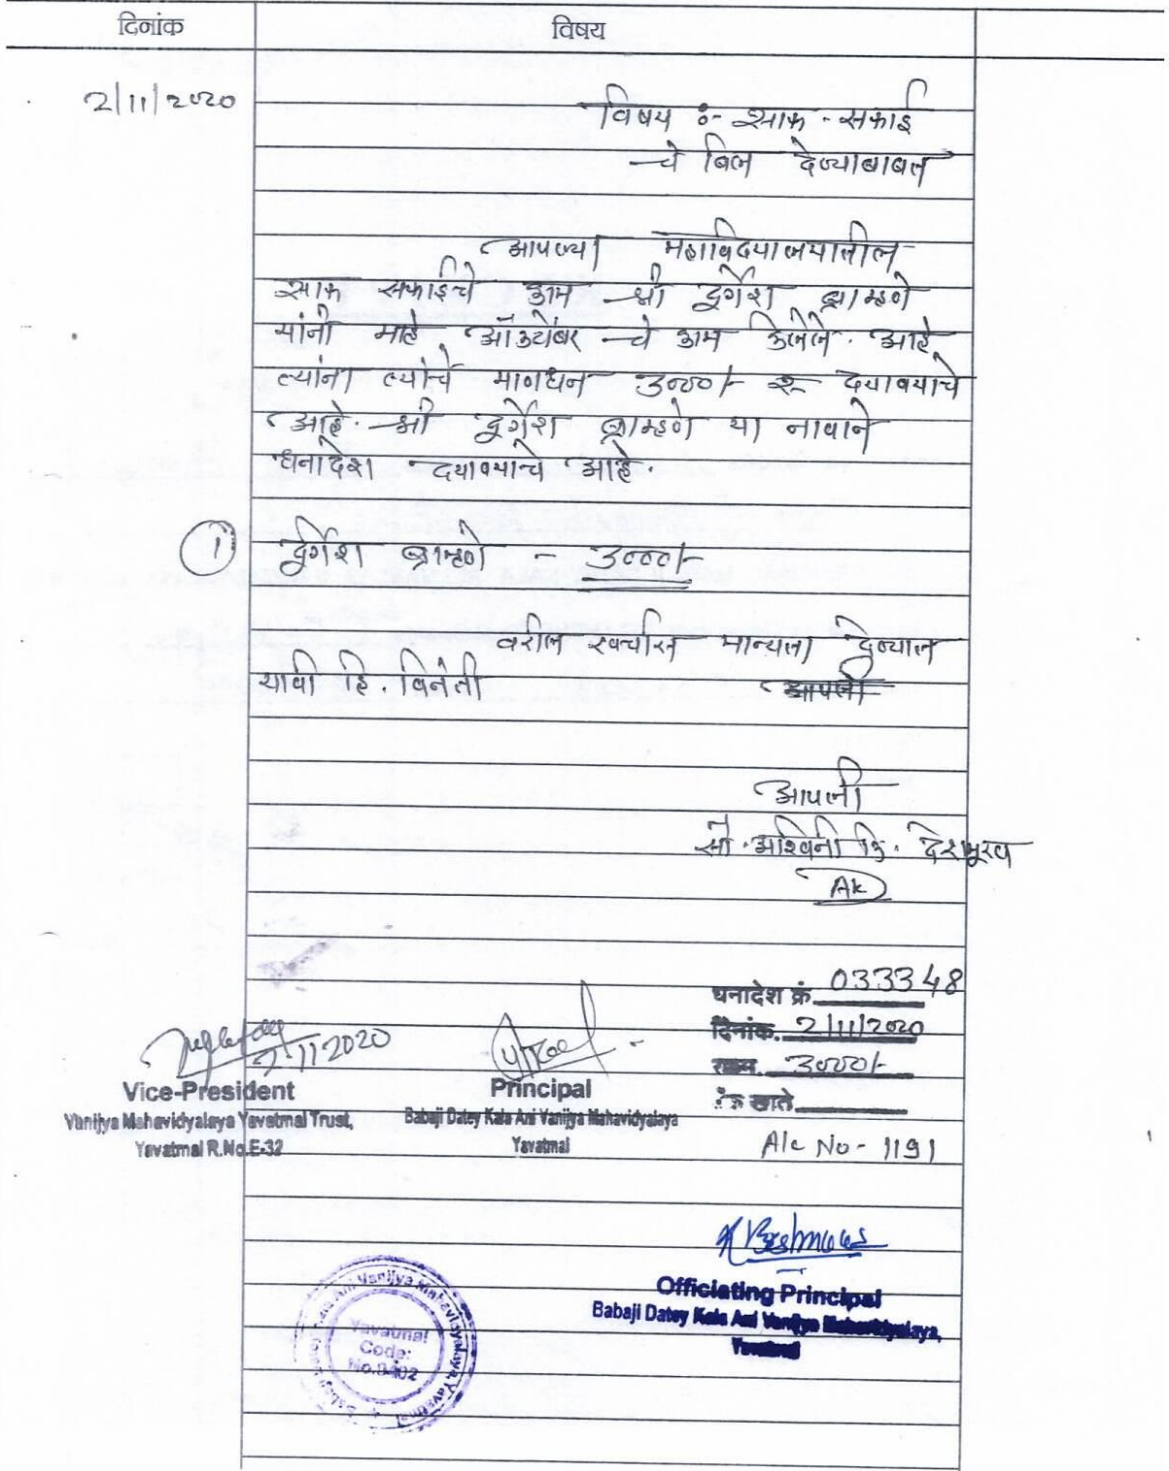 दिनांक विषय
2/11/2020
विषय :- साफ - सफाई
चे बिल देण्याबाबत
आपल्या महाविदयालयातील
साफ सफाईचे काम श्री दुर्गेश ब्राम्हणे
यांनी माहे ऑक्टोंबर चे काम केलेले. आहे
त्यांना त्यांचे मानधन 3000/- रू दयावयाचे
आहे. श्री दुर्गेश ब्राम्हणे या नावाने
धनादेश दयावयाचे आहे.
1 दुर्गेश ब्राम्हणे - 3000/-
वरील खर्चास मान्यता देण्यात
यावी हि. विनंती आपली
आपली
सौ. अश्विनी कि. देशमुख
AK
धनादेश क्रं. 033348
दिनांक. 2/11/2020
रक्कम. 3000/-
खाते
A/c No - 1191
2/11/2020
Vice-President
Vanijya Mahavidyalaya Yavatmal Trust,
Yavatmal R.No.E-32
Principal
Babaji Datey Kala Ani Vanijya Mahavidyalaya
Yavatmal
Officiating Principal
Babaji Datey Kala Ani Vanijya Mahavidyalaya,
Yavatmal
Babaji Datey Kala Ani Vanijya Mahavidyalaya, Yavatmal
Yavatmal
Code:
No.8402